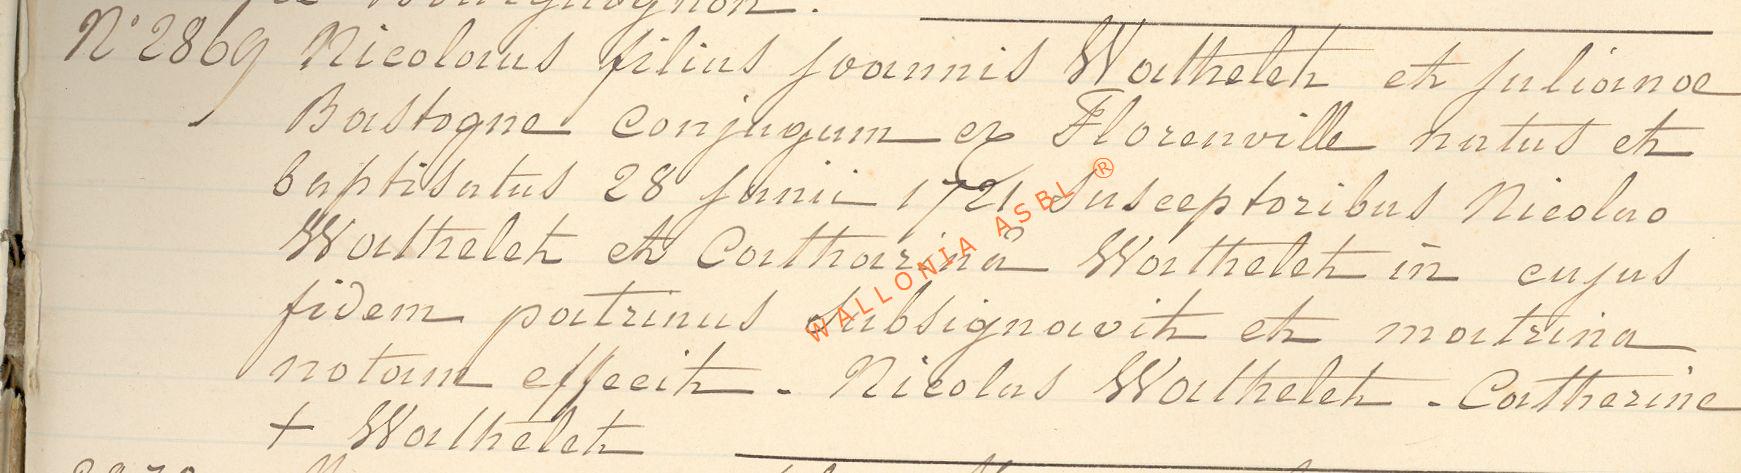 N° 2869 Nicolaus filius Joannis Wathelet et Julianae
Bastogne conjugum ex Florenville natus et
baptisatus 28 Junii 1721 Susceptoribus Nicolao
Wathelet et Catharinâ Wathelet in cujus
fidem patrinus subsignavit et matrina
notam effecit - Nicolas Wathelet - Catherine
+ Wathelet
WALLONIA ASBL ®